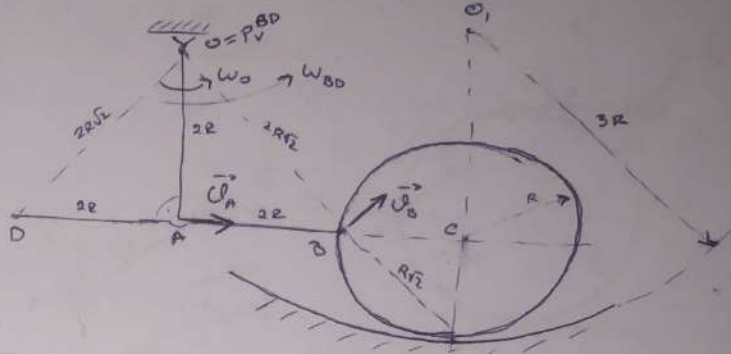 O₁
O≡Pᵥᴮᴰ
ω₀
ω_BD
2R√2
2R
2R√2
3R
R
2R
v⃗_A
2R
v⃗_B
C
D
A
B
R√2